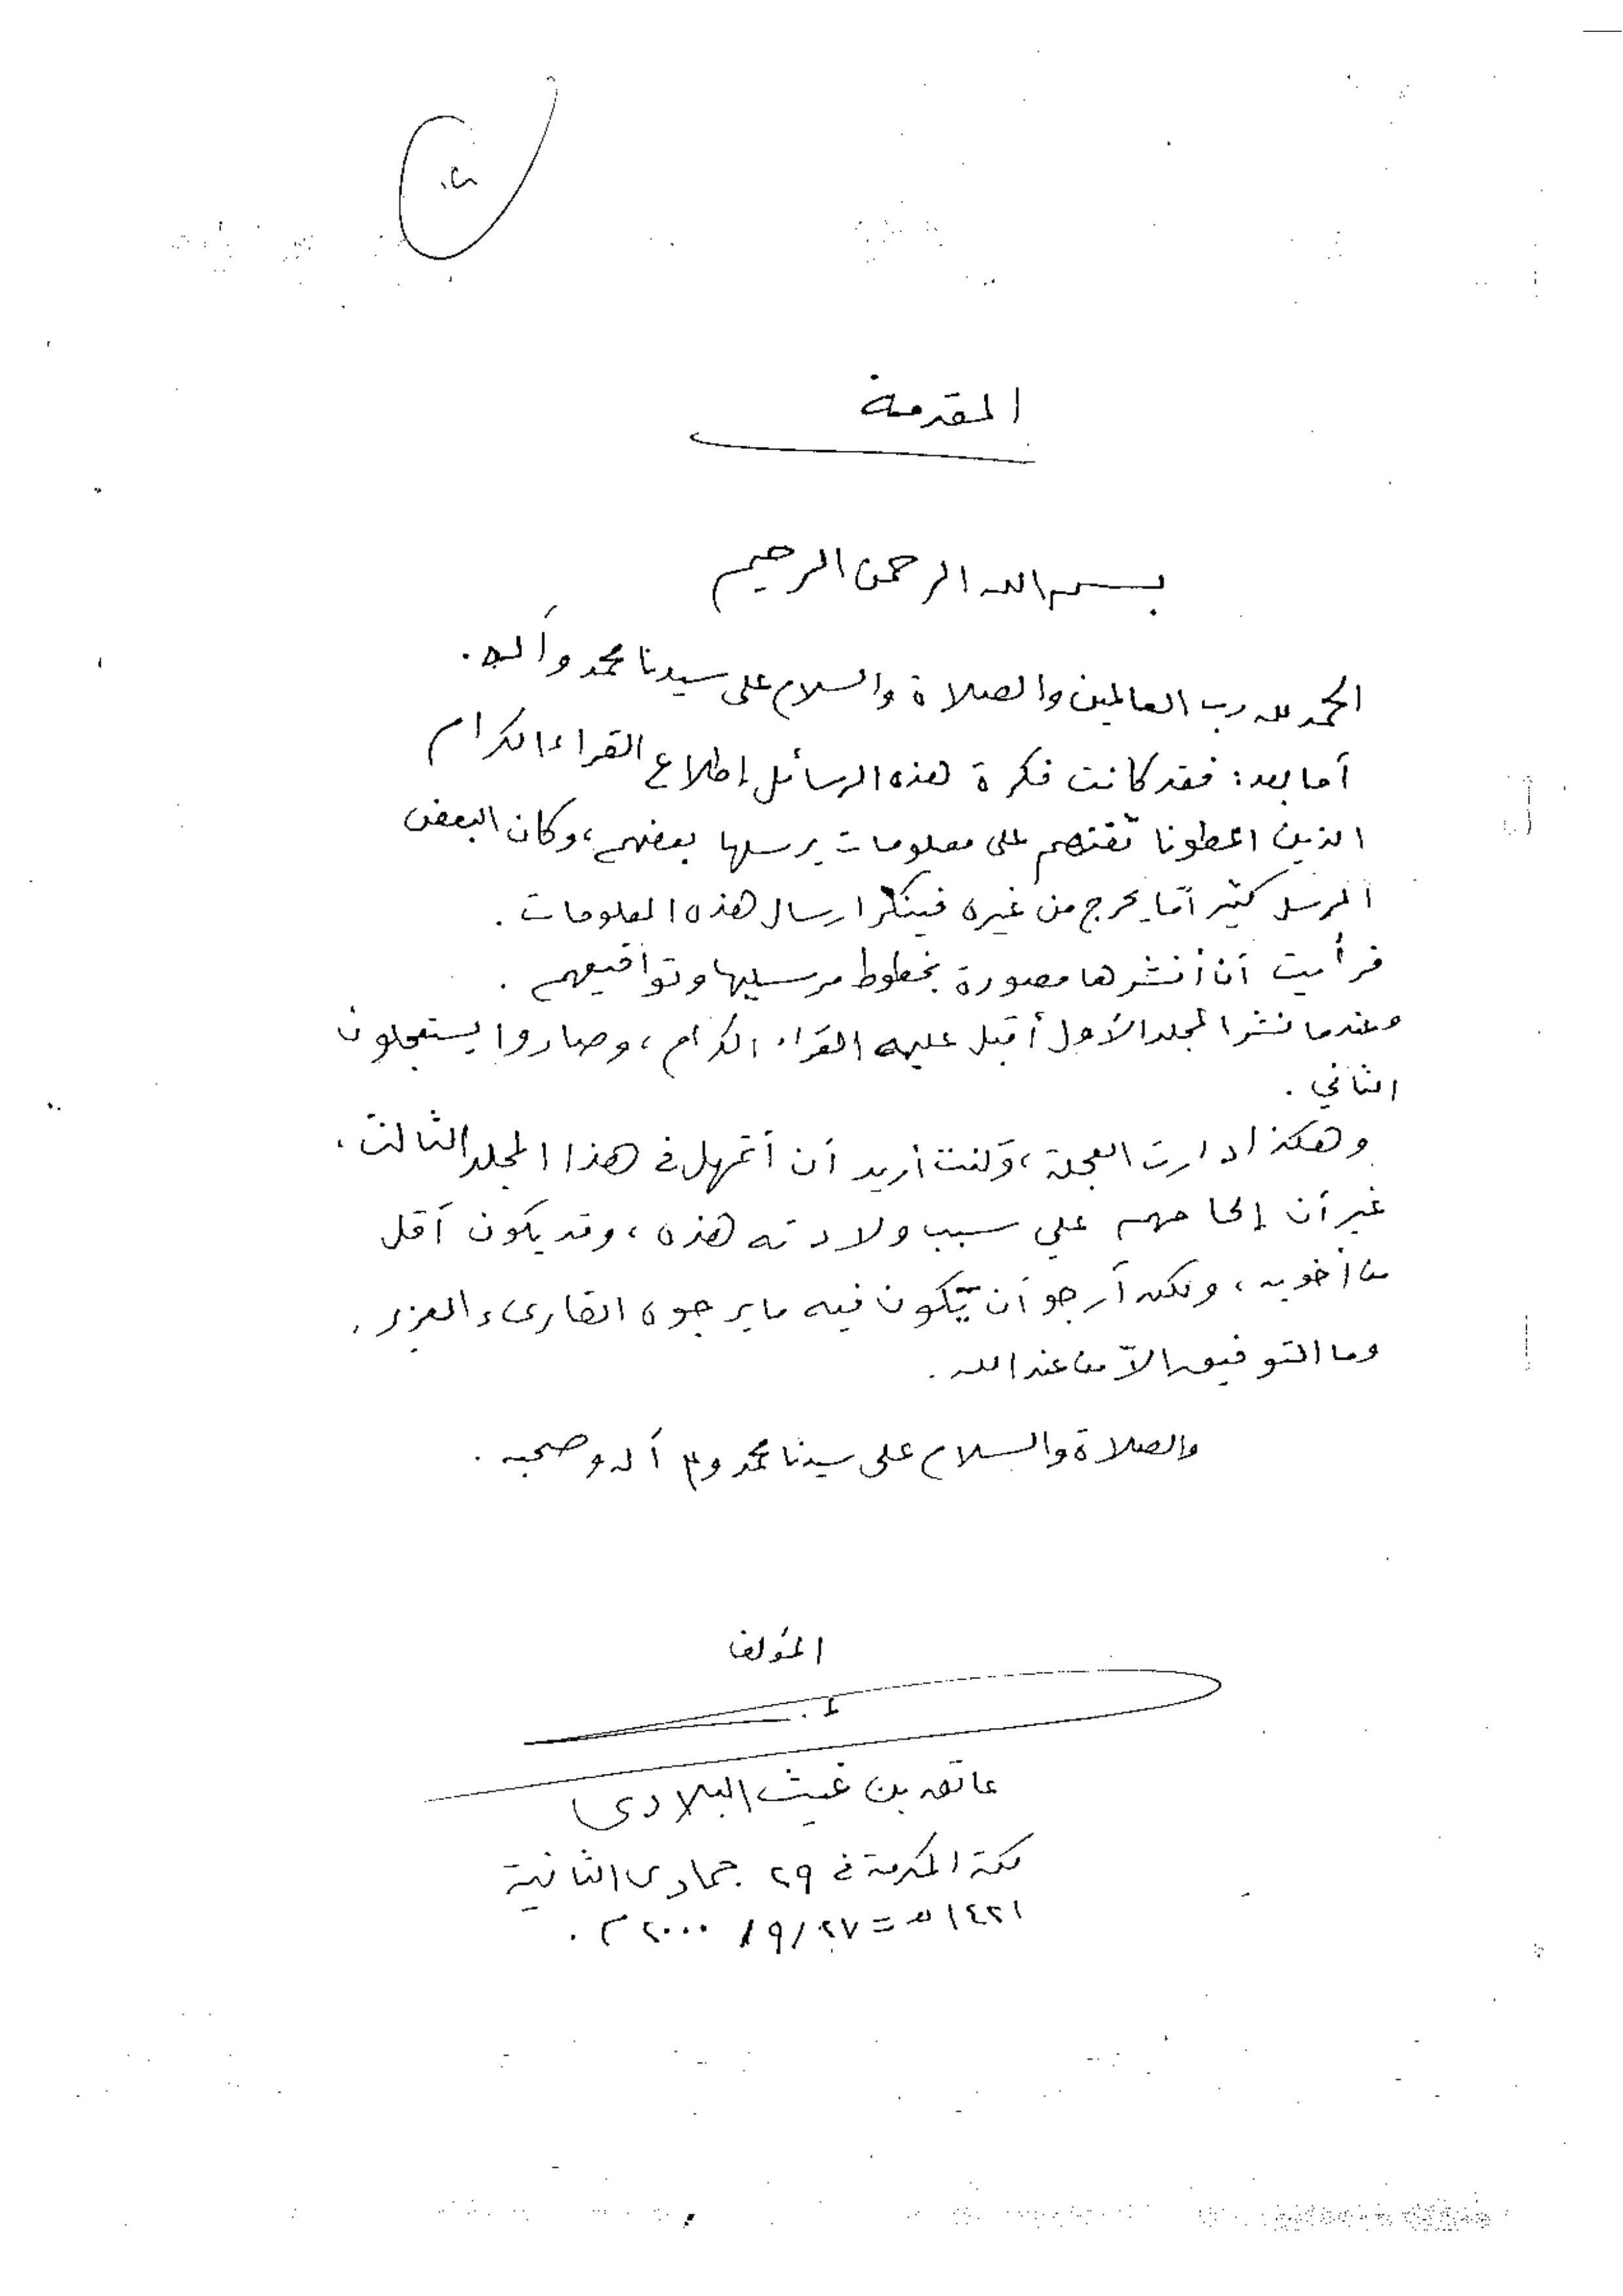 المقدمة
بسم الله الرحمن الرحيم
الحمد لله رب العالمين والصلاة والسلام على سيدنا محمد وآله .
أما بعد : فقد كانت فكرة هذه الرسائل إطلاع القراء الكرام
الذين اعطونا ثقتهم على معلومات يرسلها بعضهم ، وكان البعض
المرسل كثيراً ما يحرج من غيره فينكر ارسال هذه المعلومات .
فرأيت أن أنشرها مصورة بخطوط مرسليها وتواقيعهم .
وعندما نشر المجلد الأول أقبل عليه القراء الكرام ، وصاروا يستعجلون
الثاني .
وهكذا دارت العجلة ، وكنت أريد أن أتمهل في هذا المجلد الثالث ،
غير أن إلحاحهم علي سبب ولادته هذه ، وقد يكون أقل
من أخويه ، ولكن أرجو أن يكون فيه ما يرجوه القارىء العزيز .
وما التوفيق إلاّ من عند الله .
والصلاة والسلام على سيدنا محمد وعلى آله وصحبه .
المؤلف
عاتق بن غيث البلادي
مكة المكرمة في ٢٩ جمادى الثانية
١٤٢١ هـ = ٢٧ / ٩ / ٢٠٠٠ م .